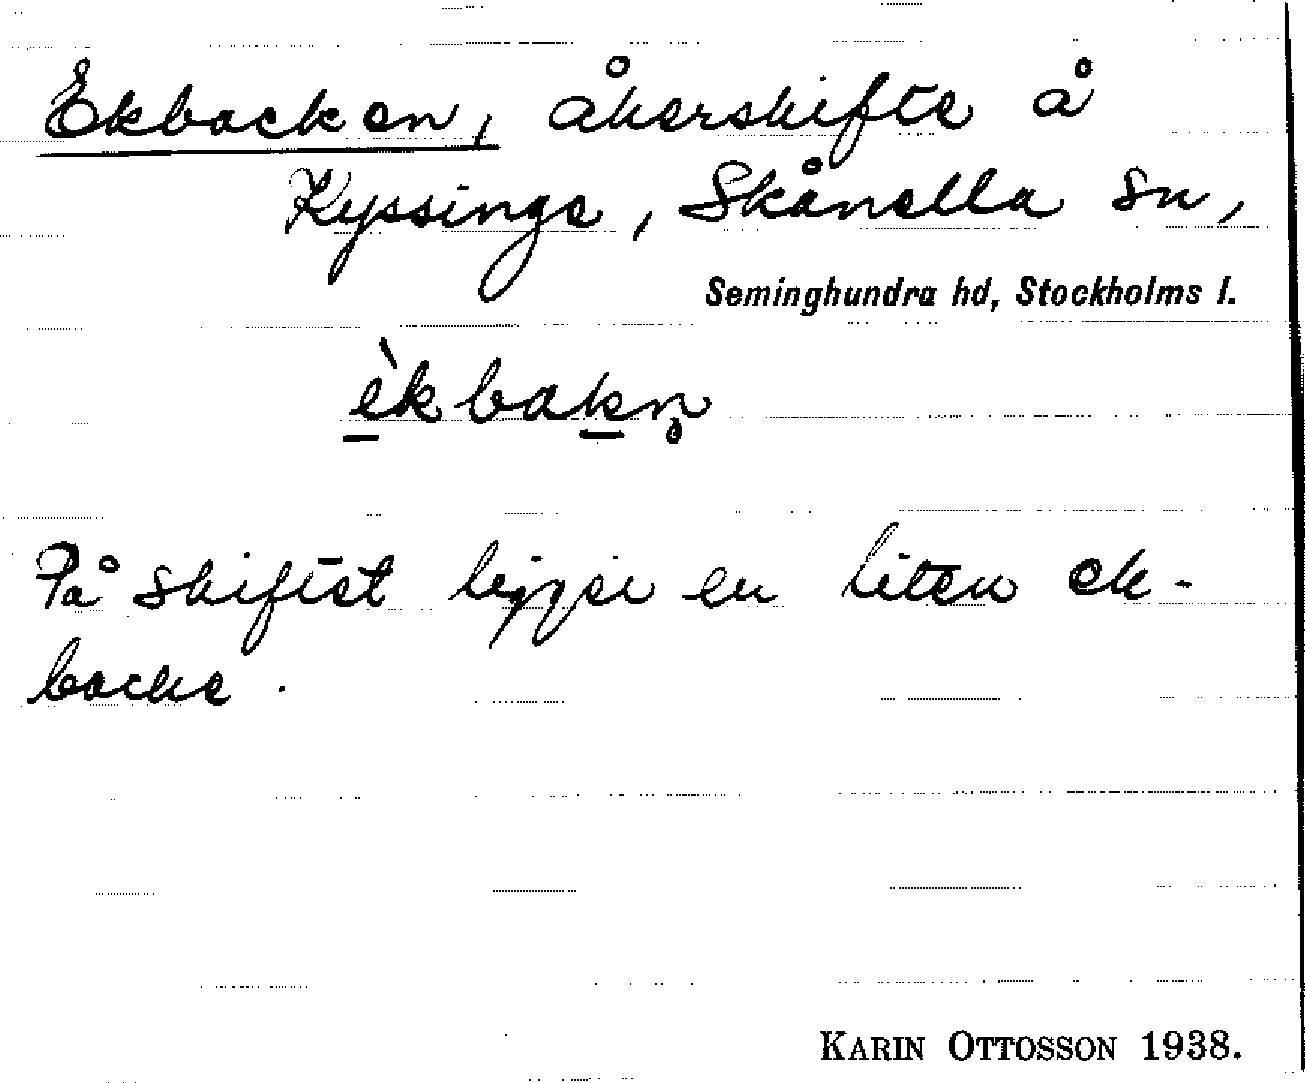 Ekbacken, åkerskifte å
Kyssinge, Skånella sn,
Seminghundra hd, Stockholms l.
èkbakn̥
På skiftet ligger en liten ek-
backe.
KARIN OTTOSSON 1938.